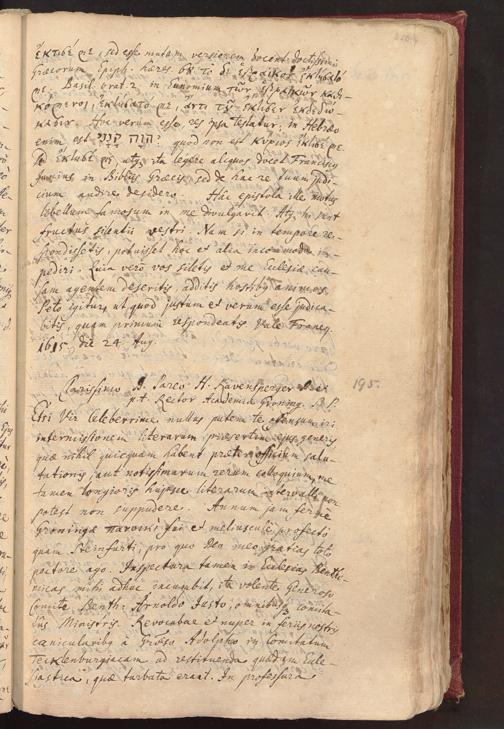 ἔκτισέ με, sed esse mutam versionem docent doctissimi
Græcorum Epiph. hæres
Basil. orat. 2. in Eunomium τῶν
Hoc verum esse, res ipsa testatur, in Hebræo
enim est יהוה קנני quod non est κύριος ἔκτισέ με
sed legere aliquos docet Franciscus
Junius in Bibliis Græcis, sed de hac re tuum judi-
cium audire desidero. Hac epistola ille motus
libellum famosum in me divulgavit. Atq; hi sunt
fructus silentii vestri. Nam si in tempore re-
spondissetis, potuisset hoc et alia incommoda im-
pediri. Quia vero vos siletis et me Ecclesiæ cau-
sam agentem deseritis additis hostibus animos.
Peto igitur, ut quod justum et verum esse judica-
bitis, quam primum respondeatis Vale Franeq.
1615 die 24 Aug.
Clarissimo D. Pareo H. Ravensperger
p.t. Rector Academiæ Groning. S.P.
195.
Etsi Vir Celeberrime nullus putem te offensum iri
intermissionem literarum præsertim ejus generis
quæ nihil quicquam habent præter officium salu-
tationis, aut notissimarum rerum colloquium, me
tamen longioris hujusce literarum intervalli non
potest non suppudere. Annum jam ferme
Groningæ παροικῶ et meliuscule profecto
quam Steinfurti, pro quo Deo meo gratias toto
pectore ago. Inspectura tamen in Ecclesias Benthe-
micas mihi adhuc incumbit, ita volente Generoso
Comite Benth: Arnoldo Justo, omnibusq; comita-
tus Ministris. Revocabar et nuper in feriis nostris
canicularibus à Adolpho in Comitatum
Tecklenburgiacum ad restituenda quædam Eccle-
siastica, quæ turbata erant. In professura